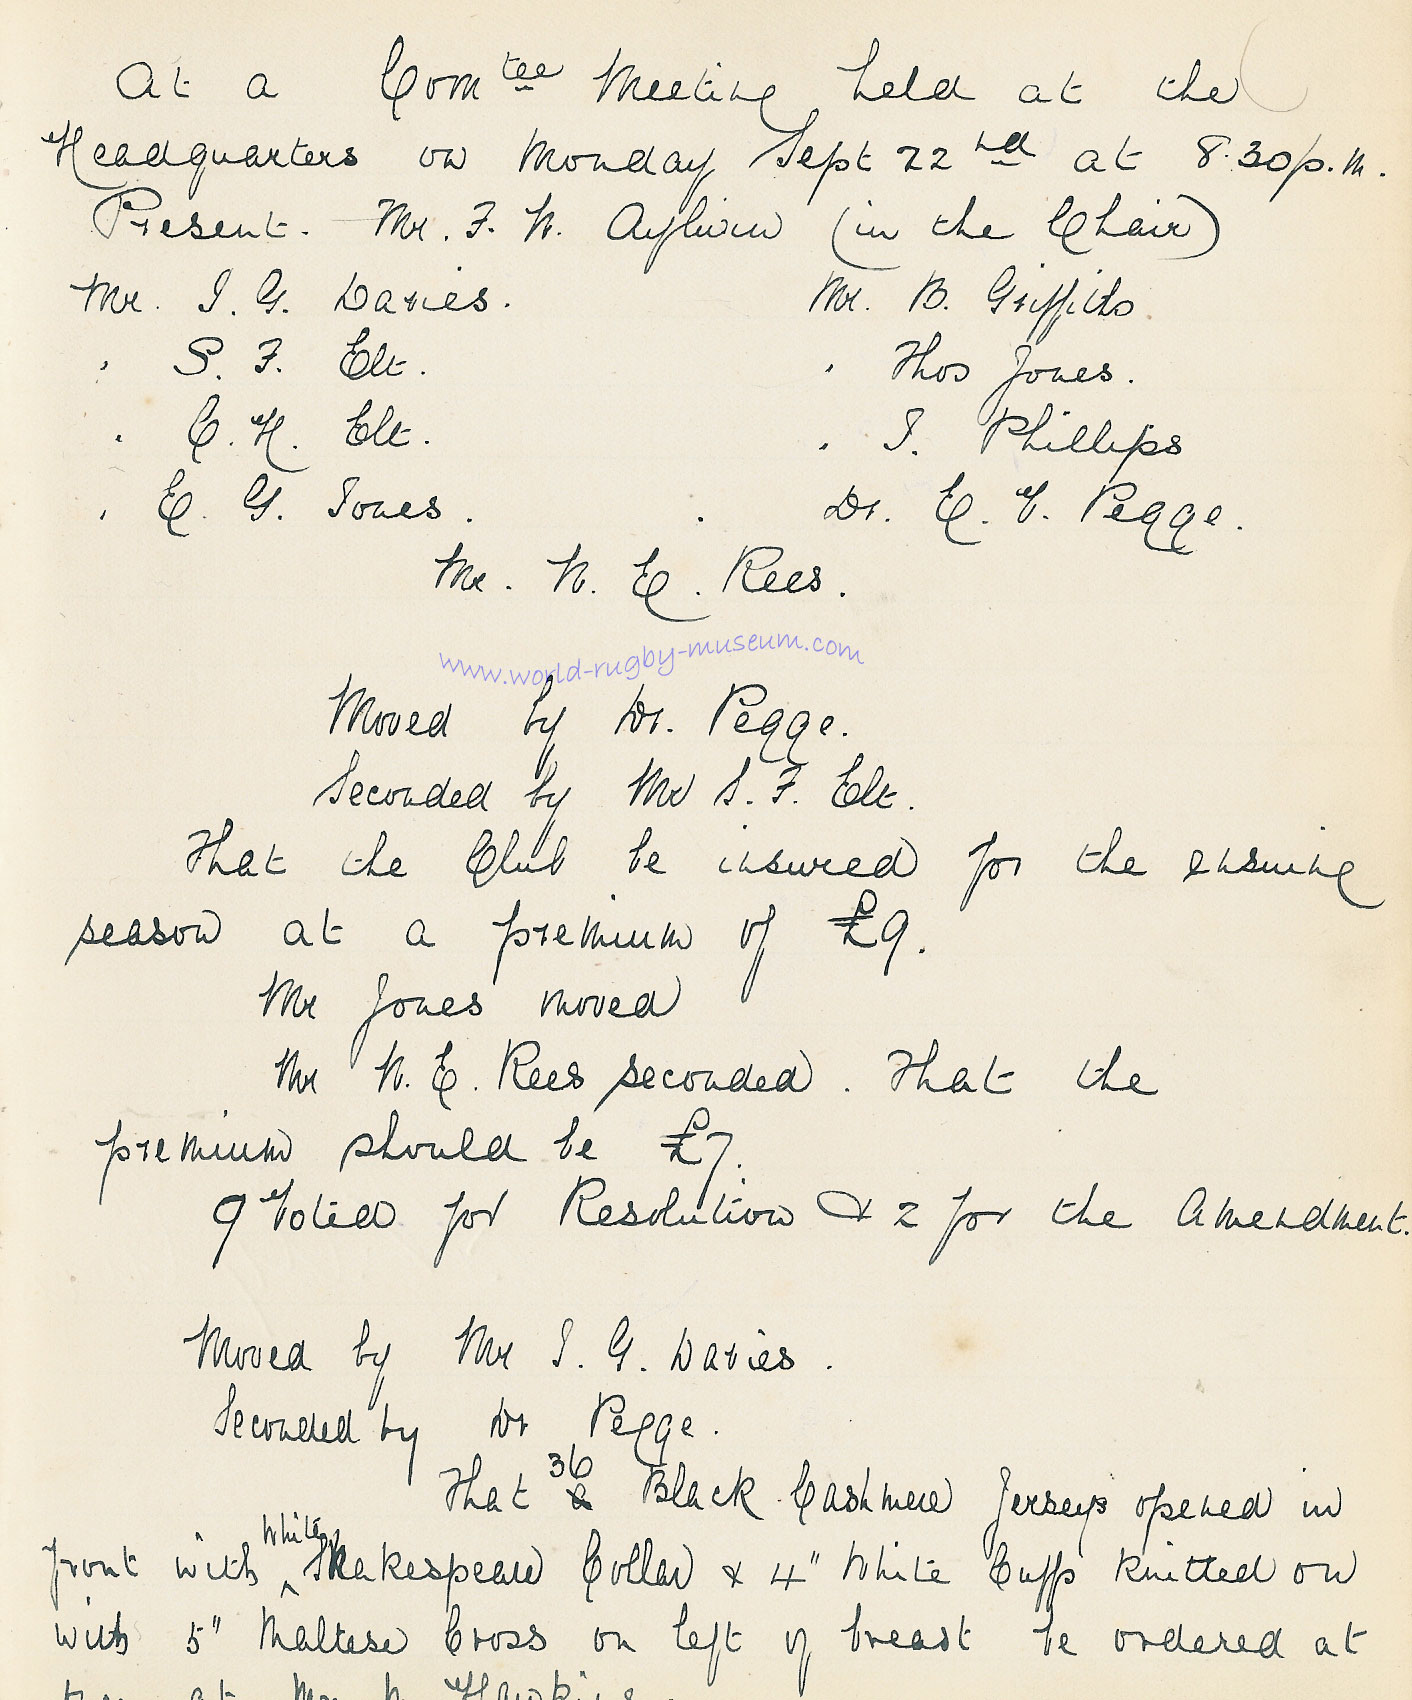 At a Com tee Meeting held at the
Headquarters on Monday Sept 22 nd at 8.30 p.m.
Present. Mr. F. W. Aylwin (in the Chair)
Mr. I. G. Davies. Mr. B. Griffiths
" S. F. Elt. " Thos Jones.
" C. H. Elt. " I. Phillips
" E. G. Jones. Dr. E. V. Pegge.
Mr. W. E. Rees.
www.world-rugby-museum.com
Moved by Dr. Pegge.
Seconded by Mr S. F. Elt.
That the Club be insured for the ensuing
season at a premium of £9.
Mr Jones moved
Mr W. E. Rees seconded. That the
premium should be £7.
9 Voted for Resolution & 2 for the Amendment.
Moved by Mr I. G. Davies.
Seconded by Dr Pegge.
That 36 Black Cashmere Jerseys opened in
front with White Shakespeare Collar & 4" White Cuffs knitted on
with 5" Maltese Cross on left of breast be ordered at
at Mr W. Hawkins.